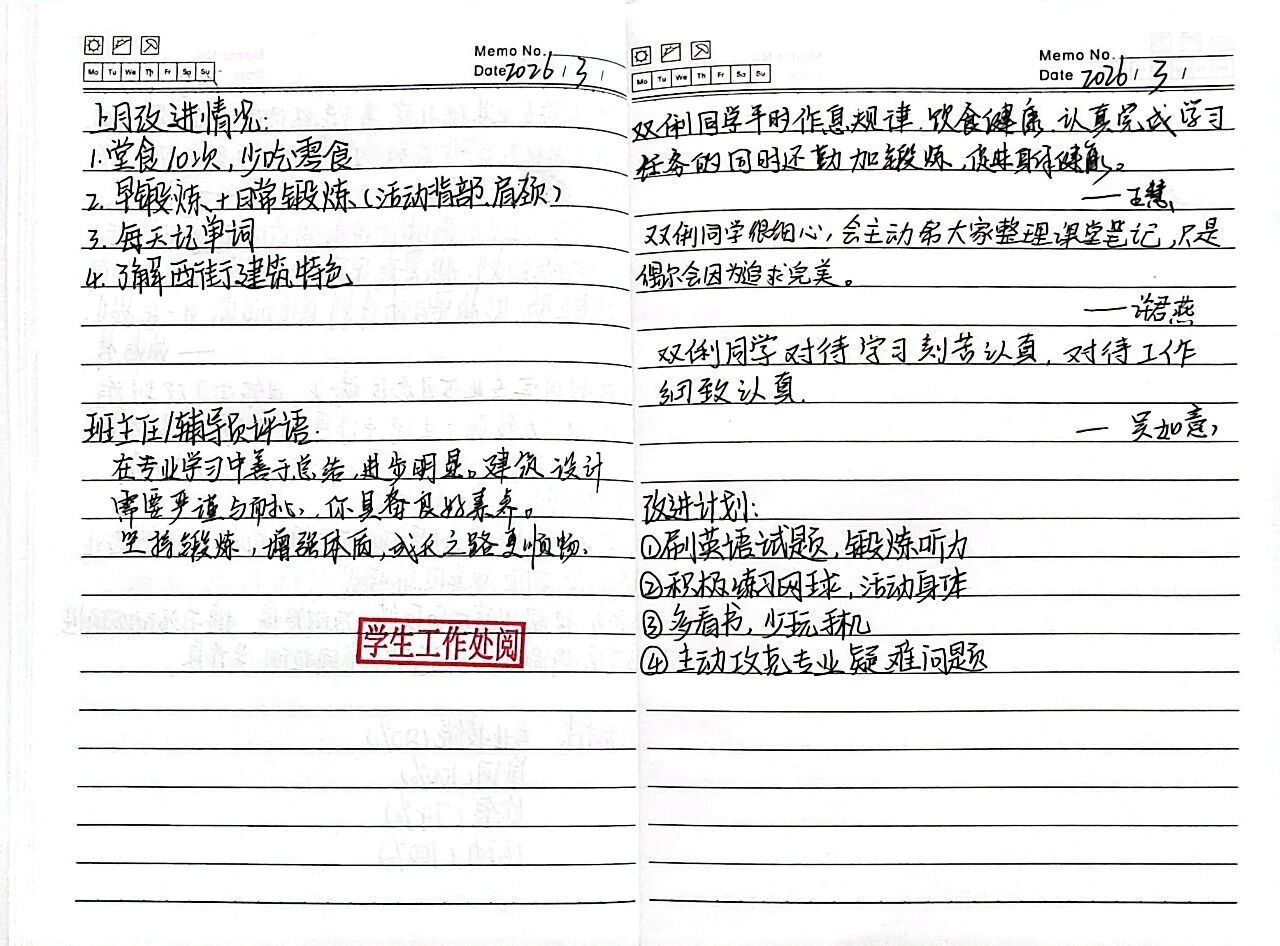 Memo No.
Mo Tu We Th Fr Sa Su
Date 2026 / 3 /
上月改进情况:
1.堂食10次,少吃零食
2.早锻炼+日常锻炼(活动背部、肩颈)
3.每天记单词
4.了解西街建筑特色
班主任/辅导员评语:
在专业学习中善于总结,进步明显。建筑设计
需要严谨与耐心,你具备良好素养。
坚持锻炼,增强体质,成长之路更顺畅.
学生工作处阅
Memo No.
Mo Tu We Th Fr Sa Su
Date 2026 / 3 /
双俐同学平时作息规律、饮食健康、认真完成学习
任务的同时还勤加锻炼,促进身体健康。
—王慧
双俐同学很细心,会主动帮大家整理课堂笔记,只是
偶尔会因为追求完美。
——许君燕
双俐同学对待学习刻苦认真,对待工作
细致认真.
— 吴如意
改进计划:
①刷英语试题,锻炼听力
②积极练习网球,活动身体
③多看书,少玩手机
④主动攻克专业疑难问题